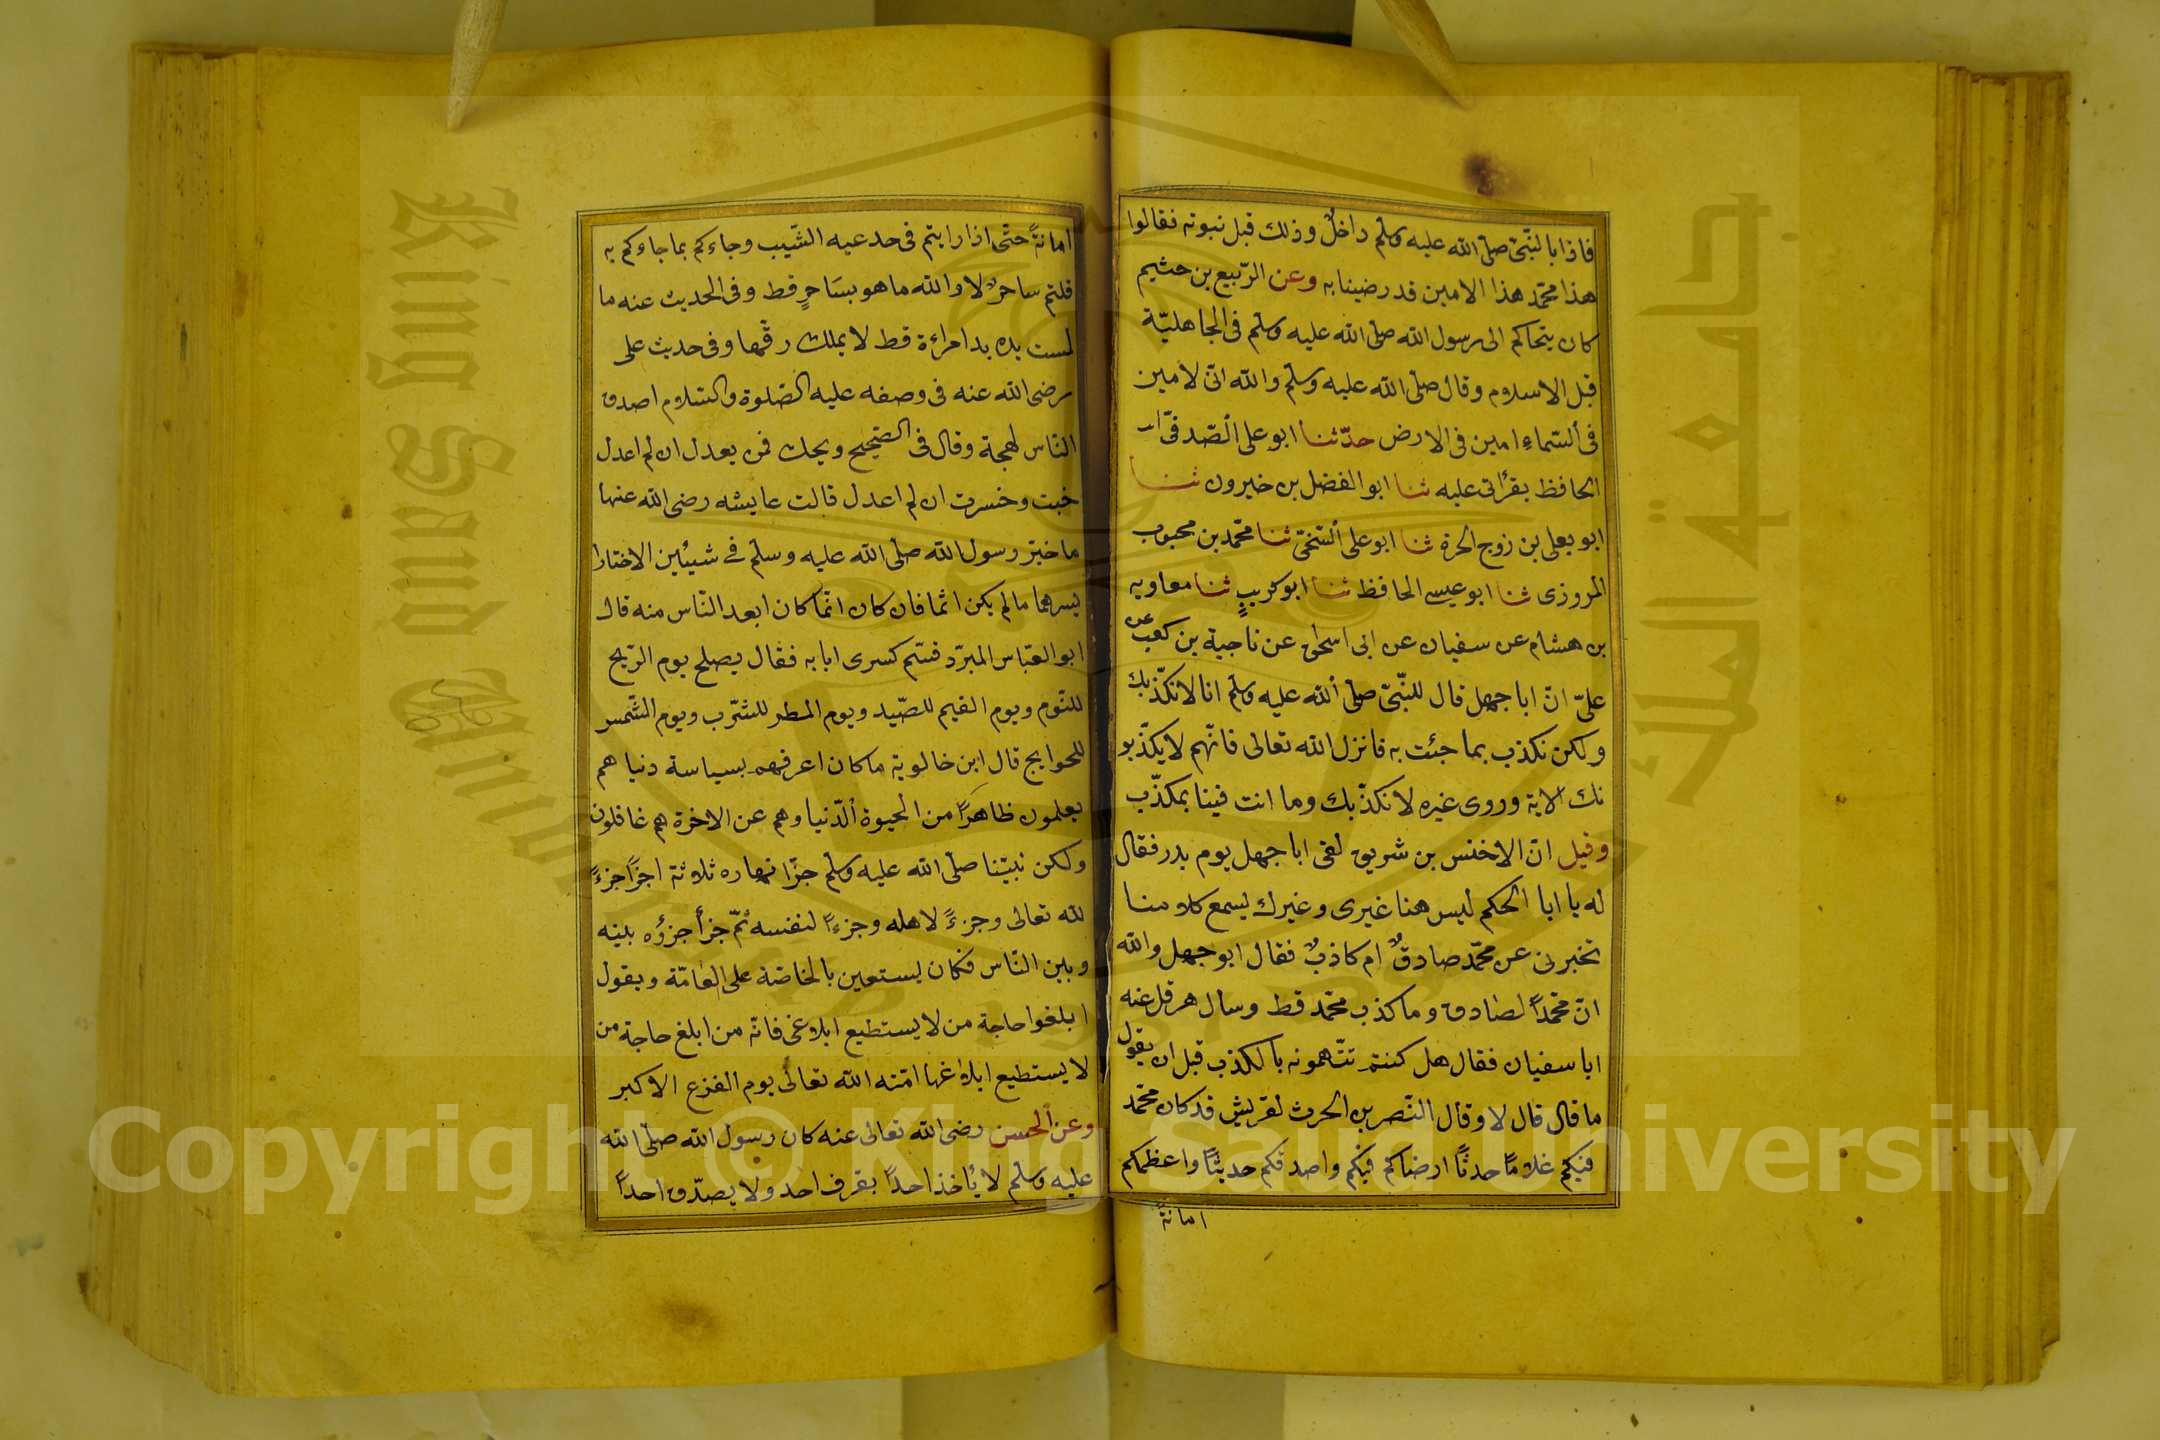 فاذا بالنّبىّ صلّى الله عليه وسلّم داخلٌ وذلك قبل نبوته فقالوا
هذا محمّد هذا الامين قد رضينا به وعن الرّبيع بن خثيم
كان يتحاكم الى رسول الله صلّى الله عليه وسلّم فى الجاهليّة
قبل الاسلام وقال صلّى الله عليه وسلّم والله انّى لامين
فى السّماء امين فى الارض حدّثنا ابو على الصّدفىّ
الحافظ بقرأتى عليه ثنا ابو الفضل بن خيرون ثنا
ابو يعلى بن زوج الحرة ثنا ابو على السّنجىّ ثنا محمّد بن محبوب
المروزى ثنا ابو عيسى الحافظ ثنا ابو كريبٍ ثنا معاويه
بن هشام عن سفيان عن ابى اسحق عن ناجية بن كعب عن
علىّ انّ ابا جهل قال للنّبىّ صلّى الله عليه وسلّم انا لا نكذّبك
ولكن نكذب بما جئت به فانزل الله تعالى فانّهم لا يكذّبو
نك الاية وروى غيره لا نكذّبك وما انت فينا بمكذّب
وقيل انّ الاخنس بن شريق لقى ابا جهل يوم بدر فقال
له يا ابا الحكم ليس هنا غيرى وغيرك يسمع كلامنا
تخبرنى عن محمّد صادقٌ ام كاذبٌ فقال ابو جهل والله
انّ محمّداً لصادق وما كذب محمّد قط وسأل هرقل عنه
ابا سفيان فقال هل كنتم تتّهمونه بالكذب قبل ان يقول
ما قال قال لا وقال النّصر بن الحرث لقريش قد كان محمّد
فيكم غلامًا حدثًا ارضاكم فيكم واصدقكم حديثًا واعظمكم
امانةً
امانةً حتّى اذا رايتم فى صدغيه الشّيب وجاءكم بما جاءكم به
قلتم ساحرٌ لا والله ما هو بساحرٍ قط وفى الحديث عنه ما
لمست يده يد امراءة قط لا يملك رقّها وفى حديث على
رضى الله عنه فى وصفه عليه الصّلوة والسّلام اصدق
النّاس لهجة وقال فى الصّحيح ويحك فمن يعدل ان لم اعدل
خبت وخسرت ان لم اعدل قالت عايشه رضى الله عنها
ما خيّر رسول الله صلّى الله عليه وسلّم فى شيئين الا ختار
ايسرهما ما لم يكن اثما فان كان اثمًا كان ابعد النّاس منه قال
ابو العبّاس المبرّد قسّم كسرى ايابه فقال يصلح يوم الرّيح
للنّوم ويوم الغيم للصّيد ويوم المطر للشّرب ويوم الشّمس
للحوايج قال ابن خالوية ما كان اعرفهم بسياسة دنيا هم
يعلمون ظاهراً من الحيوة الدّنيا وهم عن الاخرة هم غافلون
ولكن نبيّنا صلّى الله عليه وسلّم جزّا نهاره ثلاثة اجزاً جزءً
لله تعالى وجزءً لاهله وجزءً لنفسه ثمّ جزأ جزؤه بينه
وبين النّاس فكان يستعين بالخاصّة على العامّة ويقول
ابلغوا حاجة من لا يستطيع ابلاغى فانّه من ابلغ حاجة من
لا يستطيع ابلاغها امّنه الله تعالى يوم الفزع الاكبر
وعن الحسن رضى الله تعالى عنه كان رسول الله صلّى الله
عليه وسلّم لا يأخذ احداً بقرف احد ولا يصدّق احداً
Copyright © King Saud University
King Saud University
جامعة الملك سعود